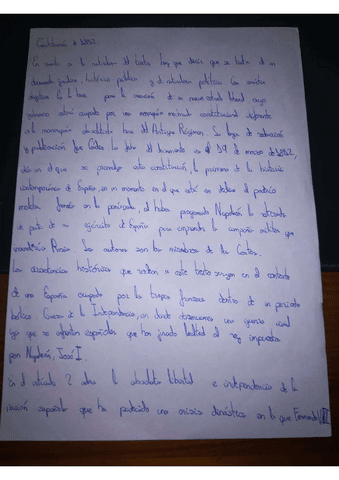 Constitución de 1812.
En cuanto a la naturaleza del texto hay que decir que se trata de un
documento jurídico, histórico público y de naturaleza política con carácter
objetivo la base para la creación de un nuevo estado liberal cuyo
gobierno está ocupado por una monarquía constitucional diferente
a la monarquía absolutista base del Antiguo Régimen. Su lugar de redacción
y publicación fue Cádiz la fecha del documento es el 19 de marzo de 1812,
día en el que se promulgó esta constitución, la primera de la historia
contemporánea de España, en un momento en el que está en declive el poderío
militar francés en la península, al haber programado Napoleón la retirada
de parte de su ejército de España para emprender la campaña militar que
Rusia. Los autores son los miembros de las Cortes.
Las circunstancias históricas que rodean a este texto surgen en el contexto
de una España ocupada por las tropas francesas dentro de un periodo
bélico: Guerra de la Independencia, en donde observamos una guerra civil
que se enfrentan españoles que han jurado lealtad al rey impuesto
por Napoleón, José I.
En el artículo 2 la absoluta libertad e independencia de la
nación española que ha padecido una crisis dinástica en la que Fernando VII